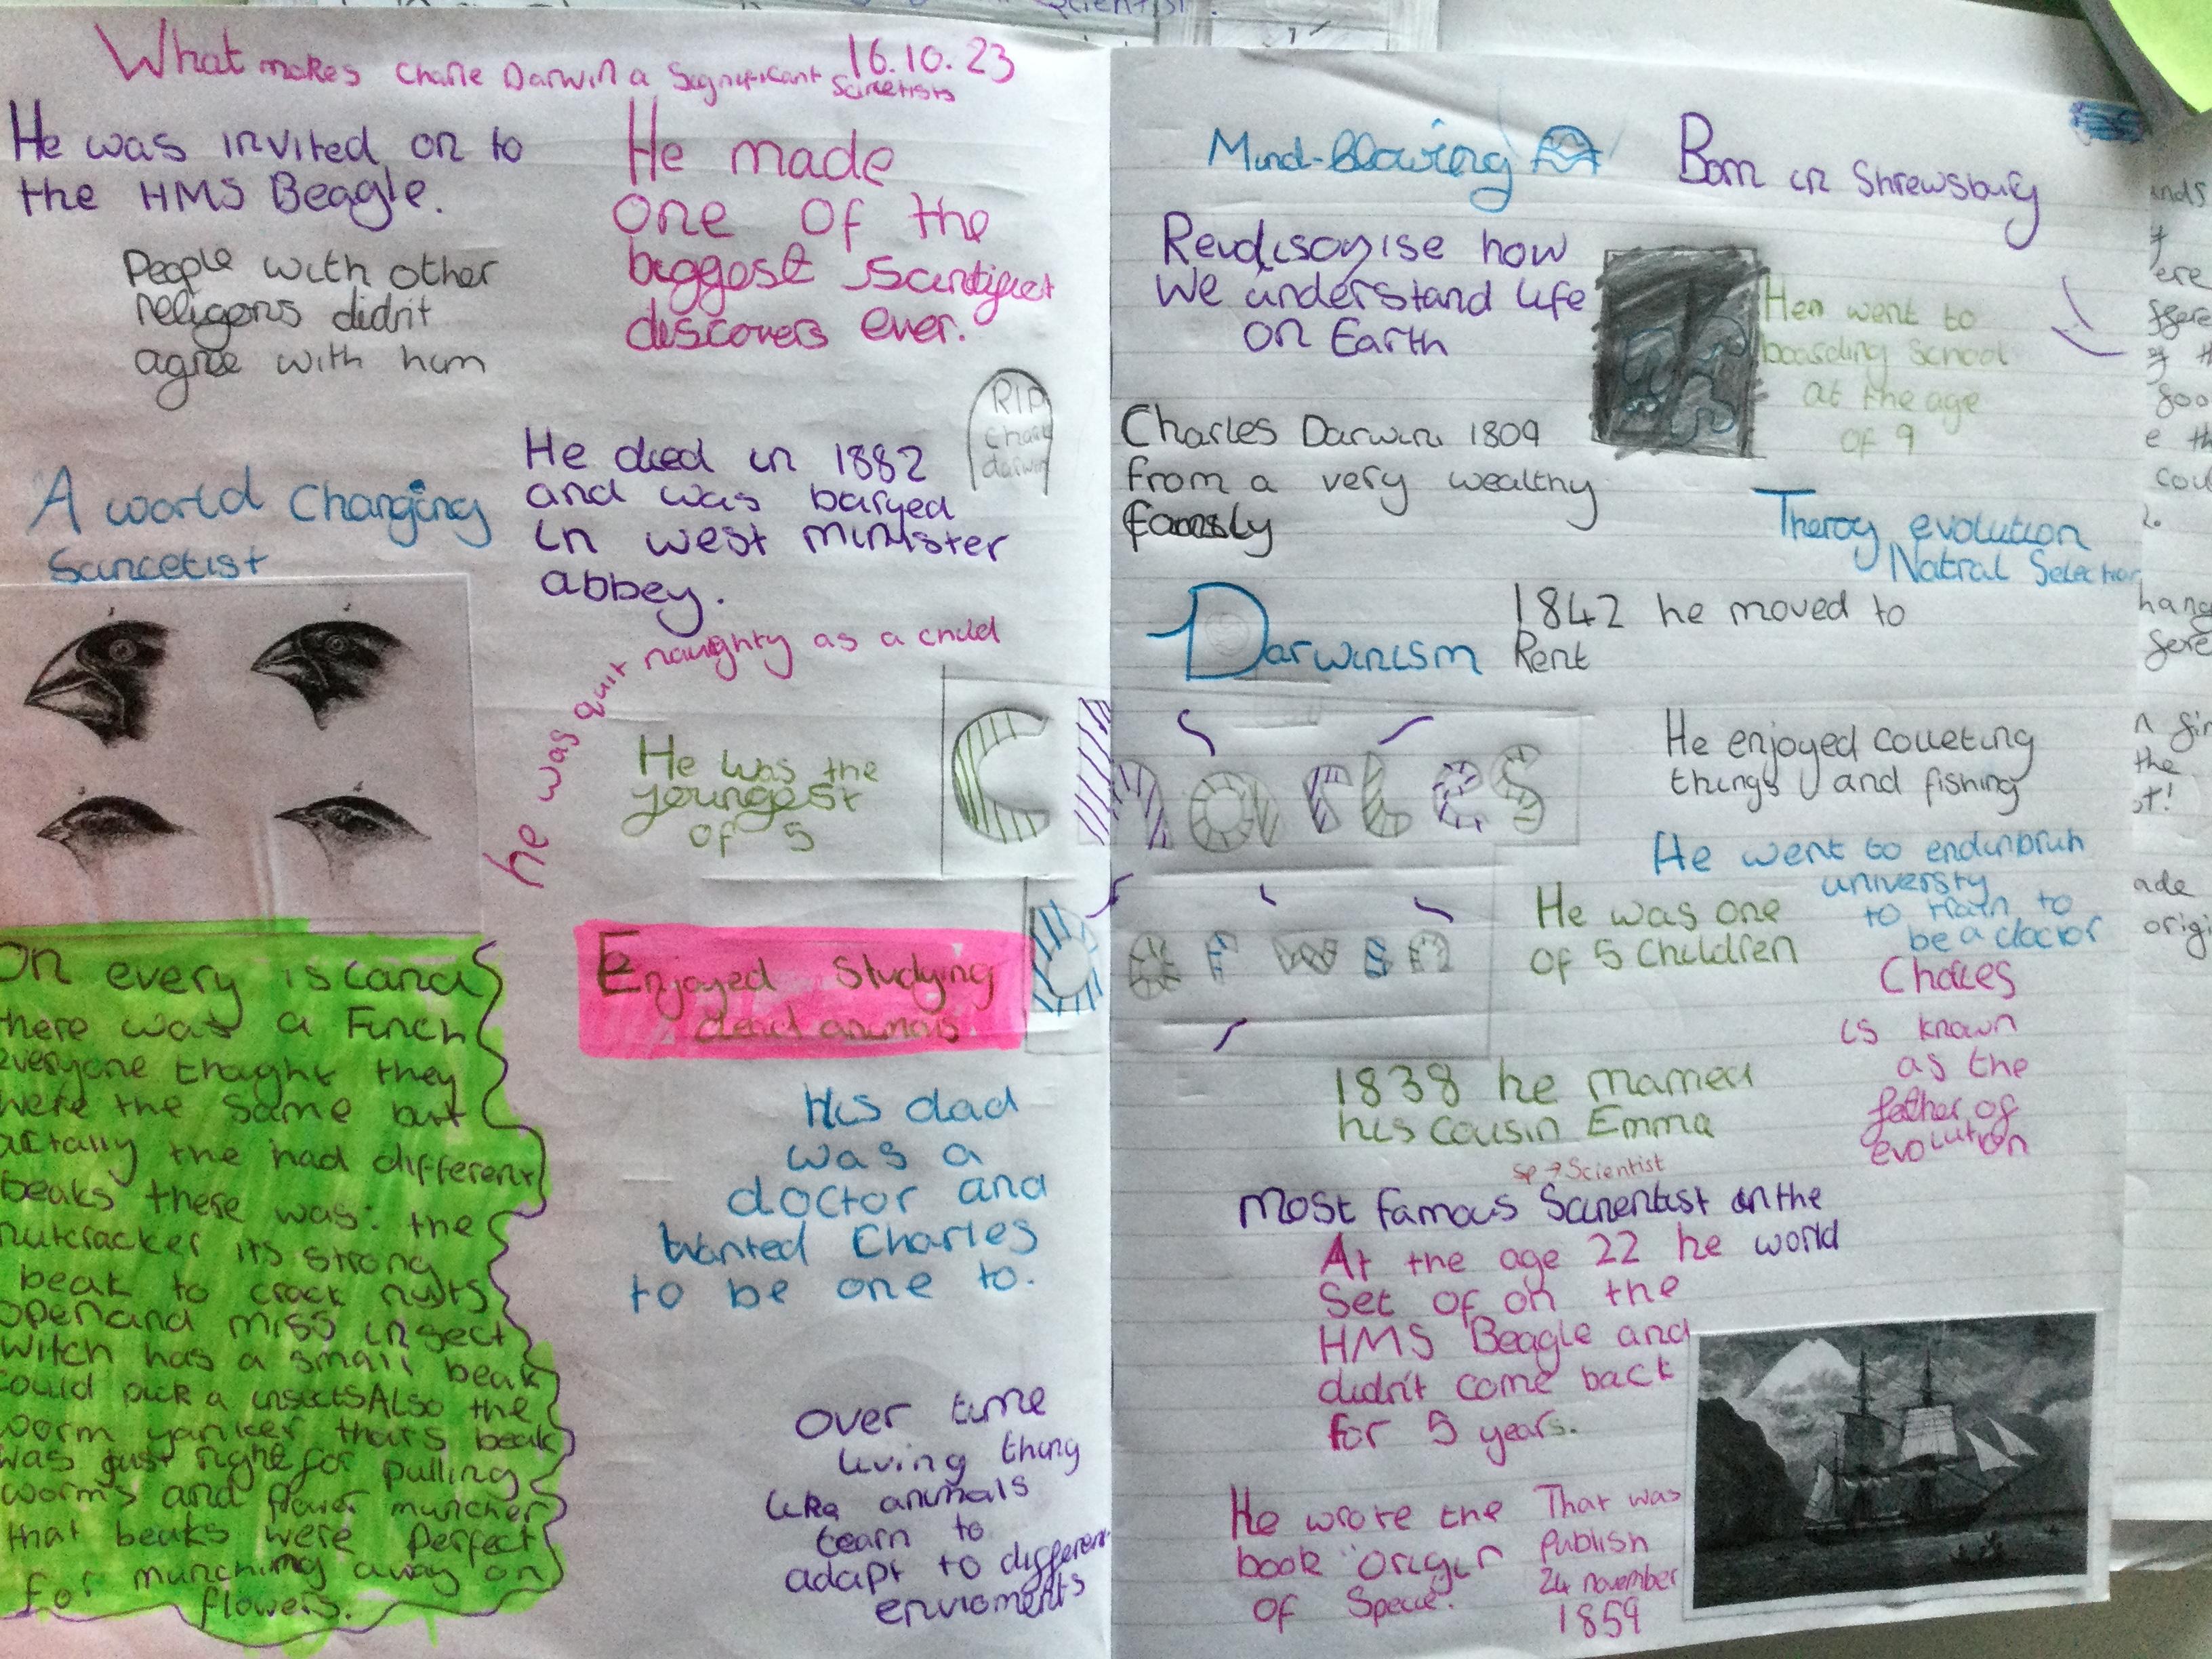 What makes Charlie Darwin a
16.10.23
He was invited on to
the HMS Beagle.
People with other
religons didn't
agree with him
He made
one of the
biggest
discovers ever.
RIP
Charle
darwin
A world Changing
Sancetist
He died in 1882
and was baryed
in west minister
abbey.
he was quit naughty as a child
He was the
youngest
of 5
On every island
there was a Finch
everyone thaght they
were the same but
actally the had different
beaks there was: the
nutcracker its strong
beak to crack nuts
open and miss insect
witch has a small beak
could pick a insects Also the
worm yanker that's beak
was just right for pulling
worms and flower muncher
that beaks were perfect
for munching away on
flowers.
Enjoyed Studying
dead animals
His dad
was a
doctor and
wanted Charles
to be one to.
over time
living thing
like animals
learn to
adapt to different
enviroments
Mind-Blowing
Born in Shrewsbury
how
we understand life
on Earth
Hen went to
boarding school
at the age
of 9
Charles Darwin 1809
from a very wealthy
family
Theroy evolution
Natral Selection
Darwinism
1842 he moved to
Kent
Charles
Darwin
He enjoyed colleting
things and fishing
He went to endinbruh
universty
to train to
be a doctor
He was one
of 5 Children
Charles
is known
as the
father of
evolution
1838 he married
his cousin Emma
sp → Scientist
most famous Scienentist in the
world
At the age 22 he
Set of on the
HMS Beagle and
didn't come back
for 5 years.
He wrote the
book "Origin
of Specie".
That was
Publish
24 november
1859